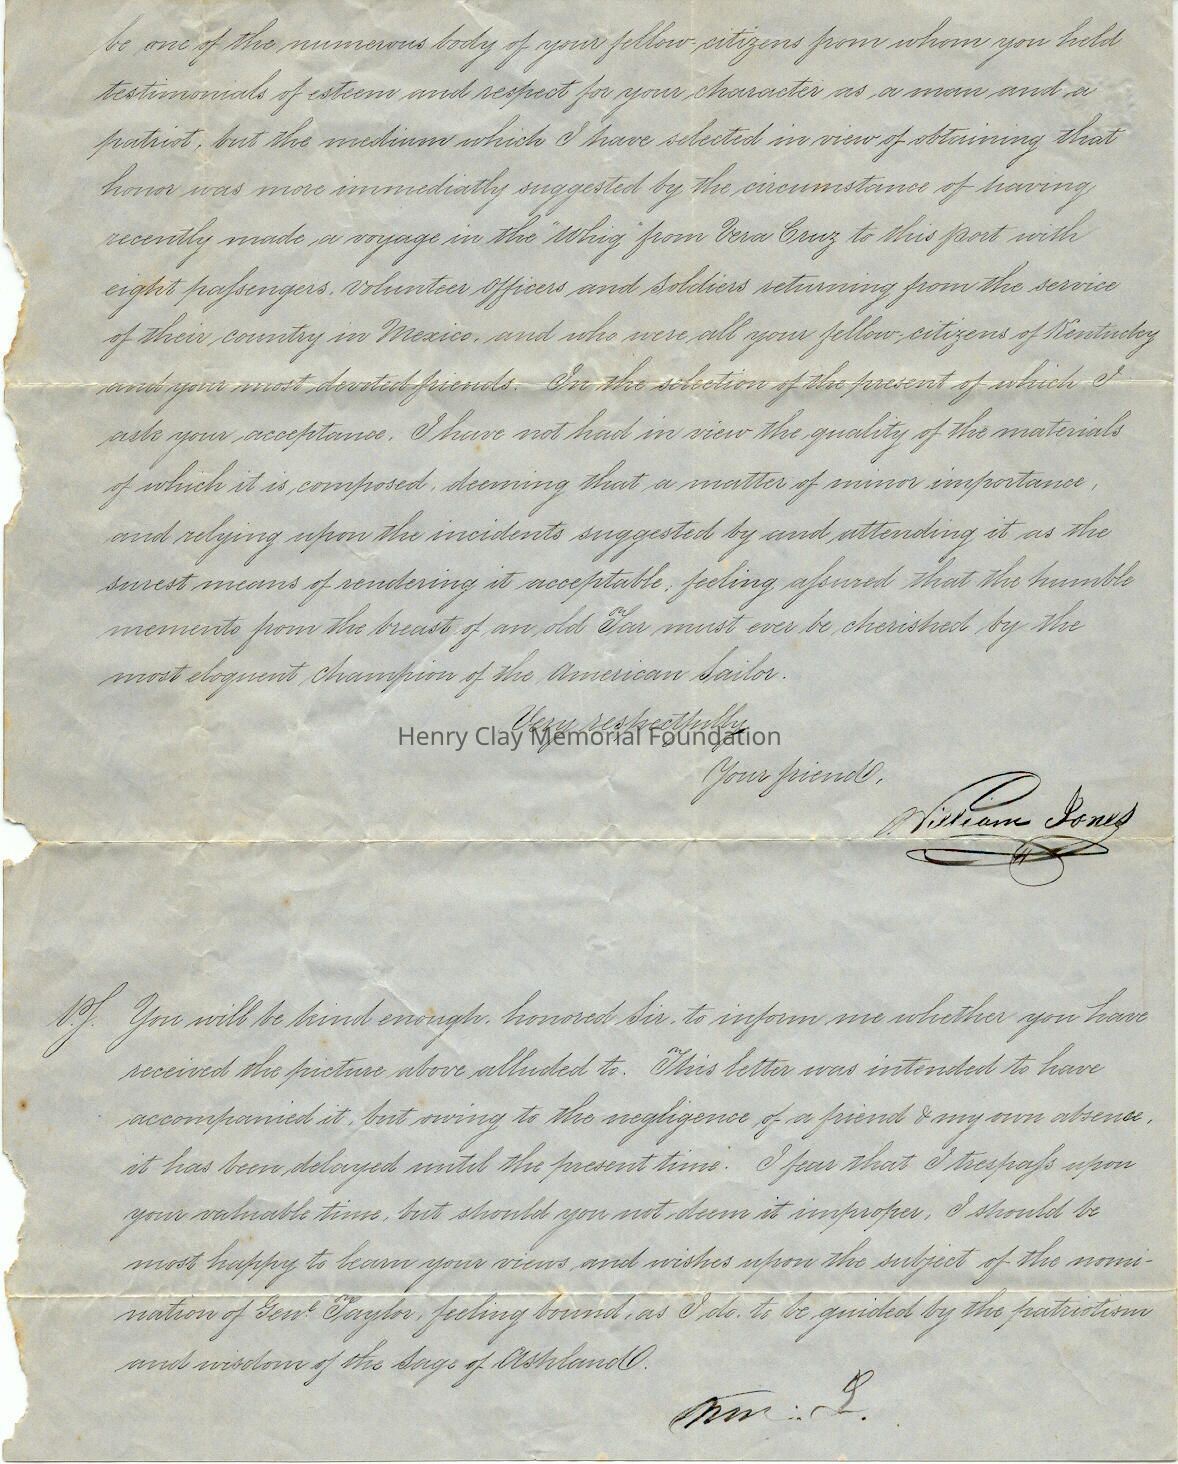 be one of the numerous body of your fellow-citizens from whom you held
testimonials of esteem and respect for your character as a man and a
patriot, but the medium which I have selected in view of obtaining that
honor was more immediatly suggested by the circumstance of having
recently made a voyage in the "Whig" from Vera Cruz to this port with
eight passengers, volunteer Officers and Soldiers returning from the service
of their country in Mexico, and who were all your fellow-citizens of Kentucky
and your most devoted friends. In the selection of the present of which I
ask your acceptance, I have not had in view the quality of the materials
of which it is composed, deeming that a matter of minor importance,
and relying upon the incidents suggested by and attending it as the
surest means of rendering it acceptable, feeling assured that the humble
memento from the breast of an old Tar must ever be cherished by the
most eloquent champion of the American Sailor.
Very respectfully
Henry Clay Memorial Foundation
Your friend,
William Jones
P.S. You will be kind enough, honored Sir, to inform me whether you have
received the picture above alluded to. This letter was intended to have
accompanied it, but owing to the negligence of a friend & my own absence,
it has been delayed until the present time. I fear that I trespass upon
your valuable time, but should you not deem it improper, I should be
most happy to learn your views and wishes upon the subject of the nomi-
nation of Genl Taylor, feeling bound, as I do, to be guided by the patriotism
and wisdom of the Sage of Ashland.
Wm: J.